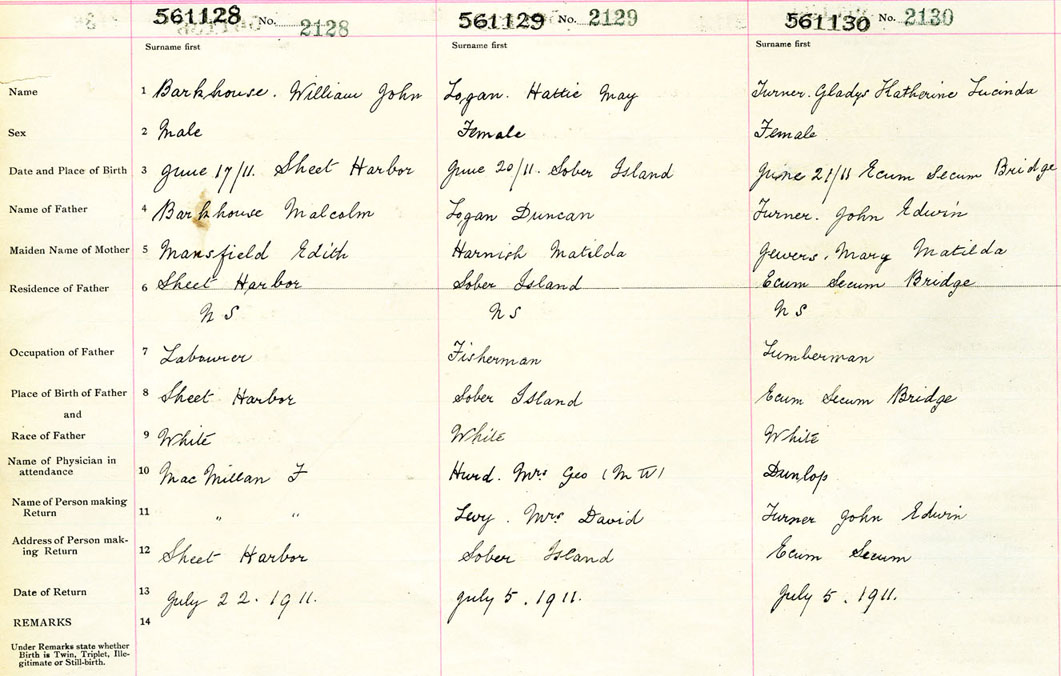 561128 No. 2128 561129 No. 2129 561130 No. 2130
Surname first Surname first Surname first
Name 1 Barkhouse. William John Logan. Hattie May Turner. Gladys Katherine Lucinda
Sex 2 Male Female Female
Date and Place of Birth 3 June 17/11. Sheet Harbor June 20/11. Sober Island June 21/11 Ecum Secum Bridge
Name of Father 4 Barkhouse Malcolm Logan Duncan Turner. John Edwin
Maiden Name of Mother 5 Mansfield Edith Harnish Matilda Jewers. Mary Matilda
Residence of Father 6 Sheet Harbor Sober Island Ecum Secum Bridge
N S N S N S
Occupation of Father 7 Labourer Fisherman Lumberman
Place of Birth of Father 8 Sheet Harbor Sober Island Ecum Secum Bridge
and
Race of Father 9 White White White
Name of Physician in
attendance 10 MacMillan F Hurd. Mrs Geo (M W) Dunlop
Name of Person making
Return 11 " " Levy. Mrs David Turner John Edwin
Address of Person mak-
ing Return 12 Sheet Harbor Sober Island Ecum Secum
Date of Return 13 July 22. 1911. July 5. 1911. July 5. 1911.
REMARKS 14
Under Remarks state whether
Birth is Twin, Triplet, Ille-
gitimate or Still-birth.